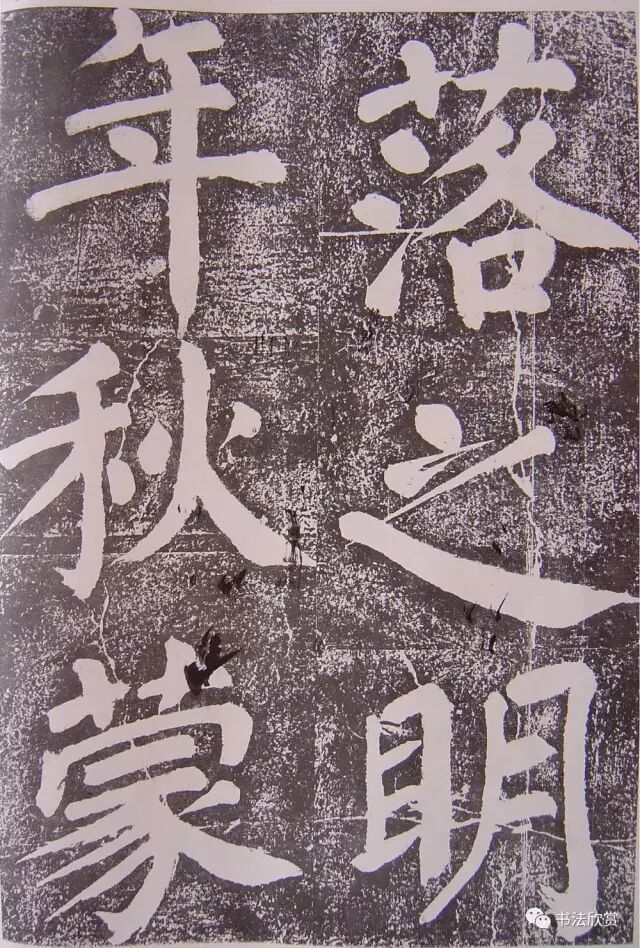 落之明
年秋蒙
书法欣赏